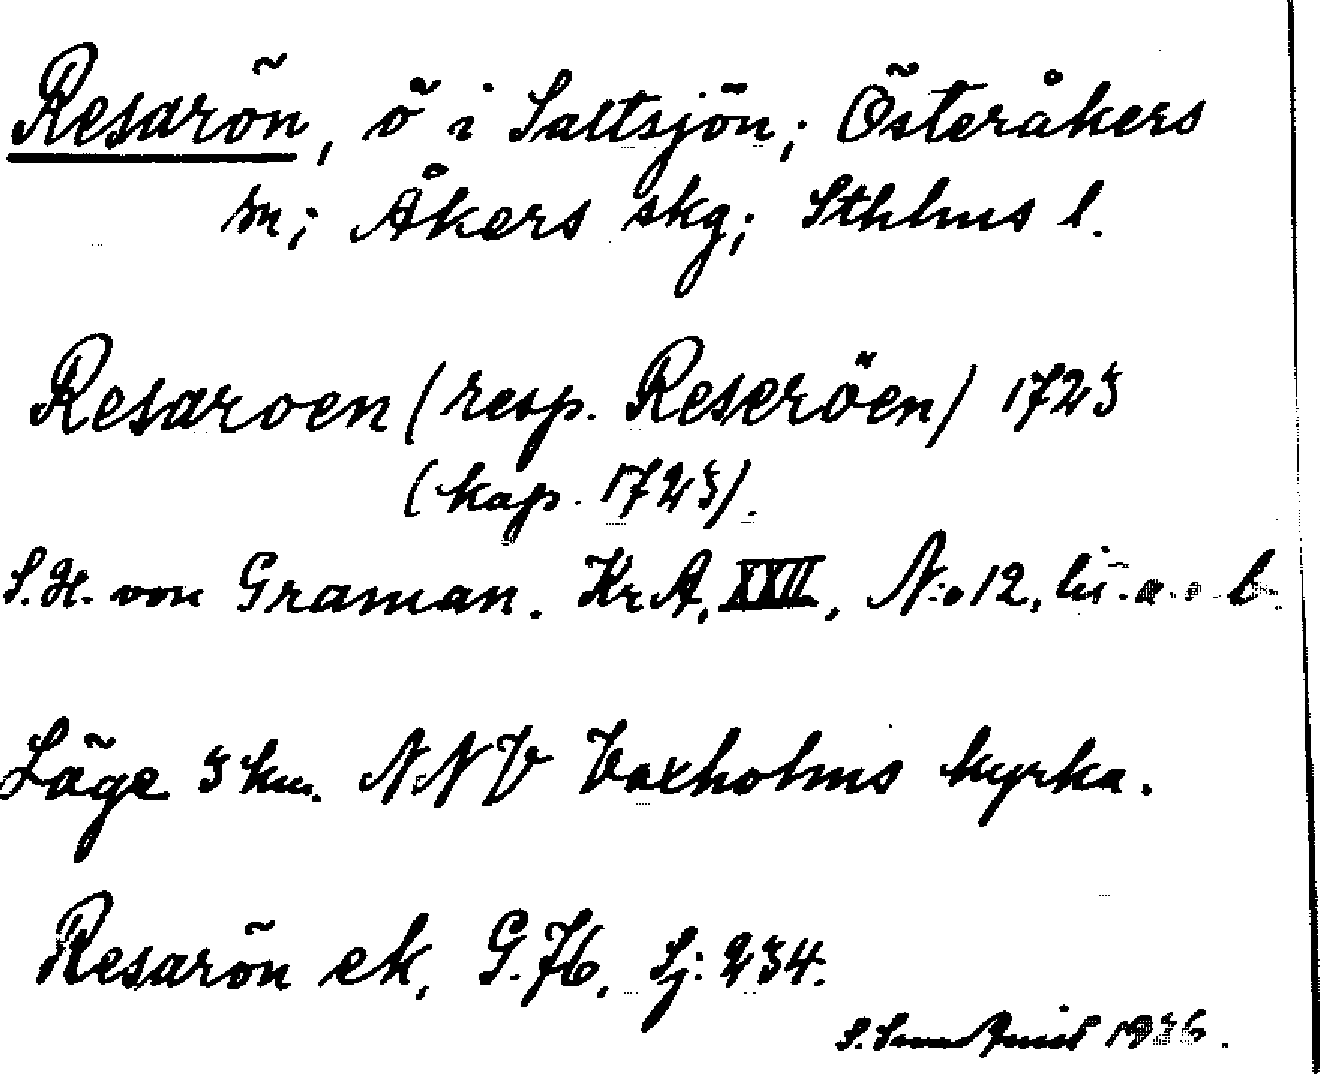 Resarön, ö i Saltsjön; Österåkers
sn; Åkers skg; Sthlms l.
Resaroen (resp. Reseröen) 1723
(kop. 1723).
S.H. von Graman. KrA, XXII, N:o 12, lit. a o b.
Läge 3 km. NNV Vaxholms kyrka.
Resarön ek, G.76, Sj: 234.
1936.